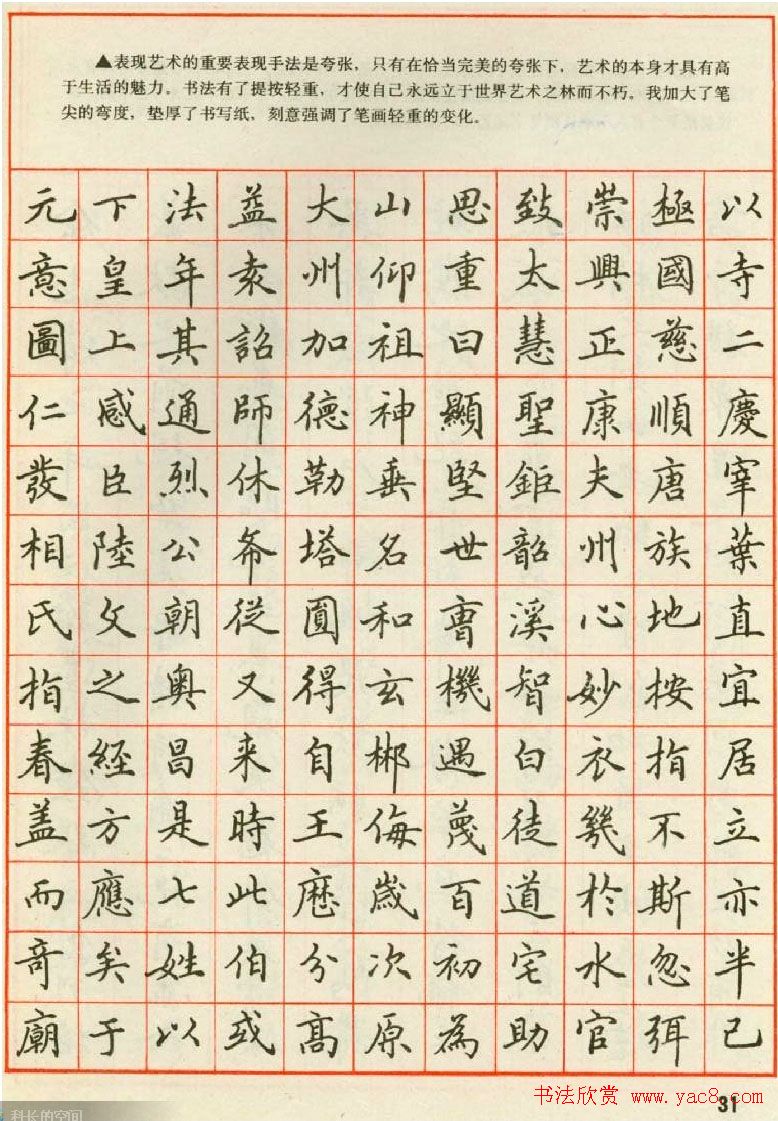 ▲表现艺术的重要表现手法是夸张，只有在恰当完美的夸张下，艺术的本身才具有高
于生活的魅力。书法有了提按轻重，才使自己永远立于世界艺术之林而不朽。我加大了笔
尖的弯度，垫厚了书写纸，刻意强调了笔画轻重的变化。
元下法益大山思致崇極以
意皇年袁州仰重太興國寺
圖上其詔加祖曰慧正慈二
仁感通師德神顯聖康順慶
發臣烈休勒垂堅鉅夫唐宰
相陸公希塔名世韶州族葉
氏文朝從圓和曹溪心地直
指之奥又得玄機智妙按宜
春經昌来自郴遇白衣指居
盖方是時王侮蔑徒幾不立
而應七此歷歲百道於斯亦
奇矣姓伯分次初宅水忽半
廟于以或高原為助官弭已
书法欣赏 www.yac8.com
31
科长的空间